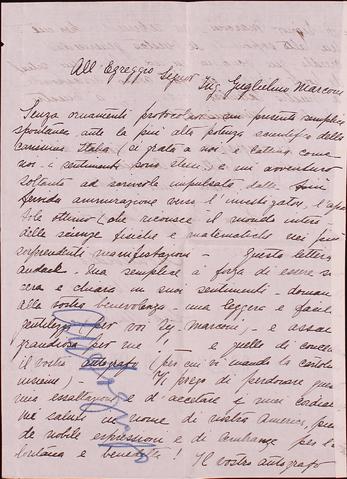 All Egreggio Signor Ing. Guglielmo Marconi
Senza ornamenti protocolari mi presento semplice
spontanea ante la più alta potenza scientifica della
carissima Italia (si grato a noi i latini come
noi i sentimenti
soltanto ad scriverla impulsata dalla
ammirazione verso l'investigatore
che reconosce il mondo intero
delle scienze fisiche e matematiche nei più
sorprendenti manifestazioni - Questa lettera
audace - ma semplice a forza di essere sin
cera e chiara in suoi sentimenti - doman
alla vostra benevolenza - una leggera e facile
gentilezza (per voi Ing. Marconi) - e assai
grandiosa per me ! e quella di conceder
il vostro autografo (per cui vi mando la cartola
- Vi prego di perdonare questa
mia e d'accettare i miei cordiali
saluti in nome di nostra America, piena
de nobile espressione e di confianza per la
lontana e benedetta ! Il vostro autografo